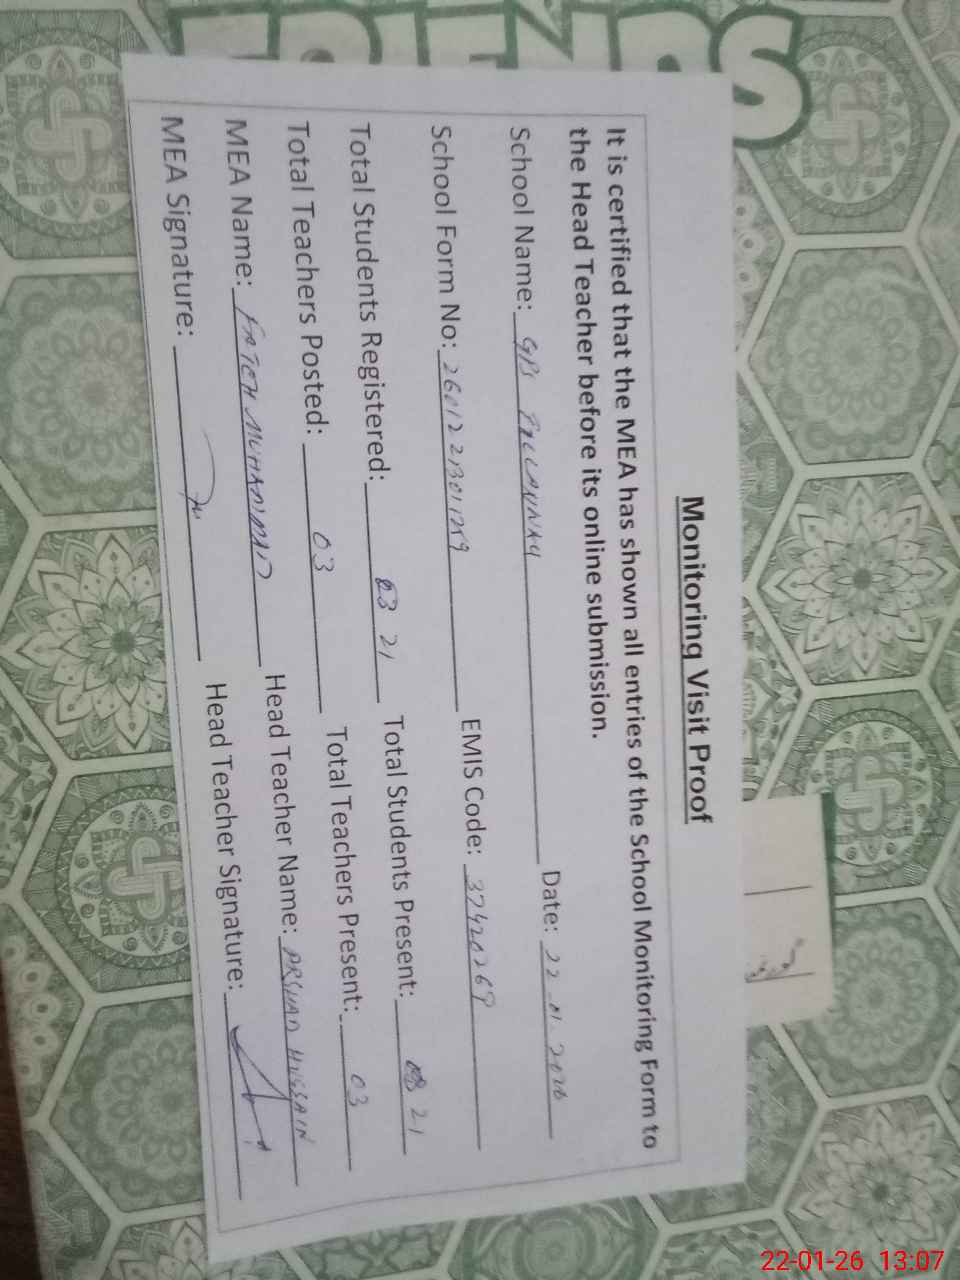 Monitoring Visit Proof
It is certified that the MEA has shown all entries of the School Monitoring Form to
the Head Teacher before its online submission.
School Name: GPS Date: 22.01.2026
School Form No: EMIS Code: 37420269
Total Students Registered: 21 Total Students Present: 21
Total Teachers Posted: 03 Total Teachers Present: 03
MEA Name: FATEH MUHAMMAD Head Teacher Name: ARSHAD HUSSAIN
MEA Signature: Head Teacher Signature:
22-01-26 13:07